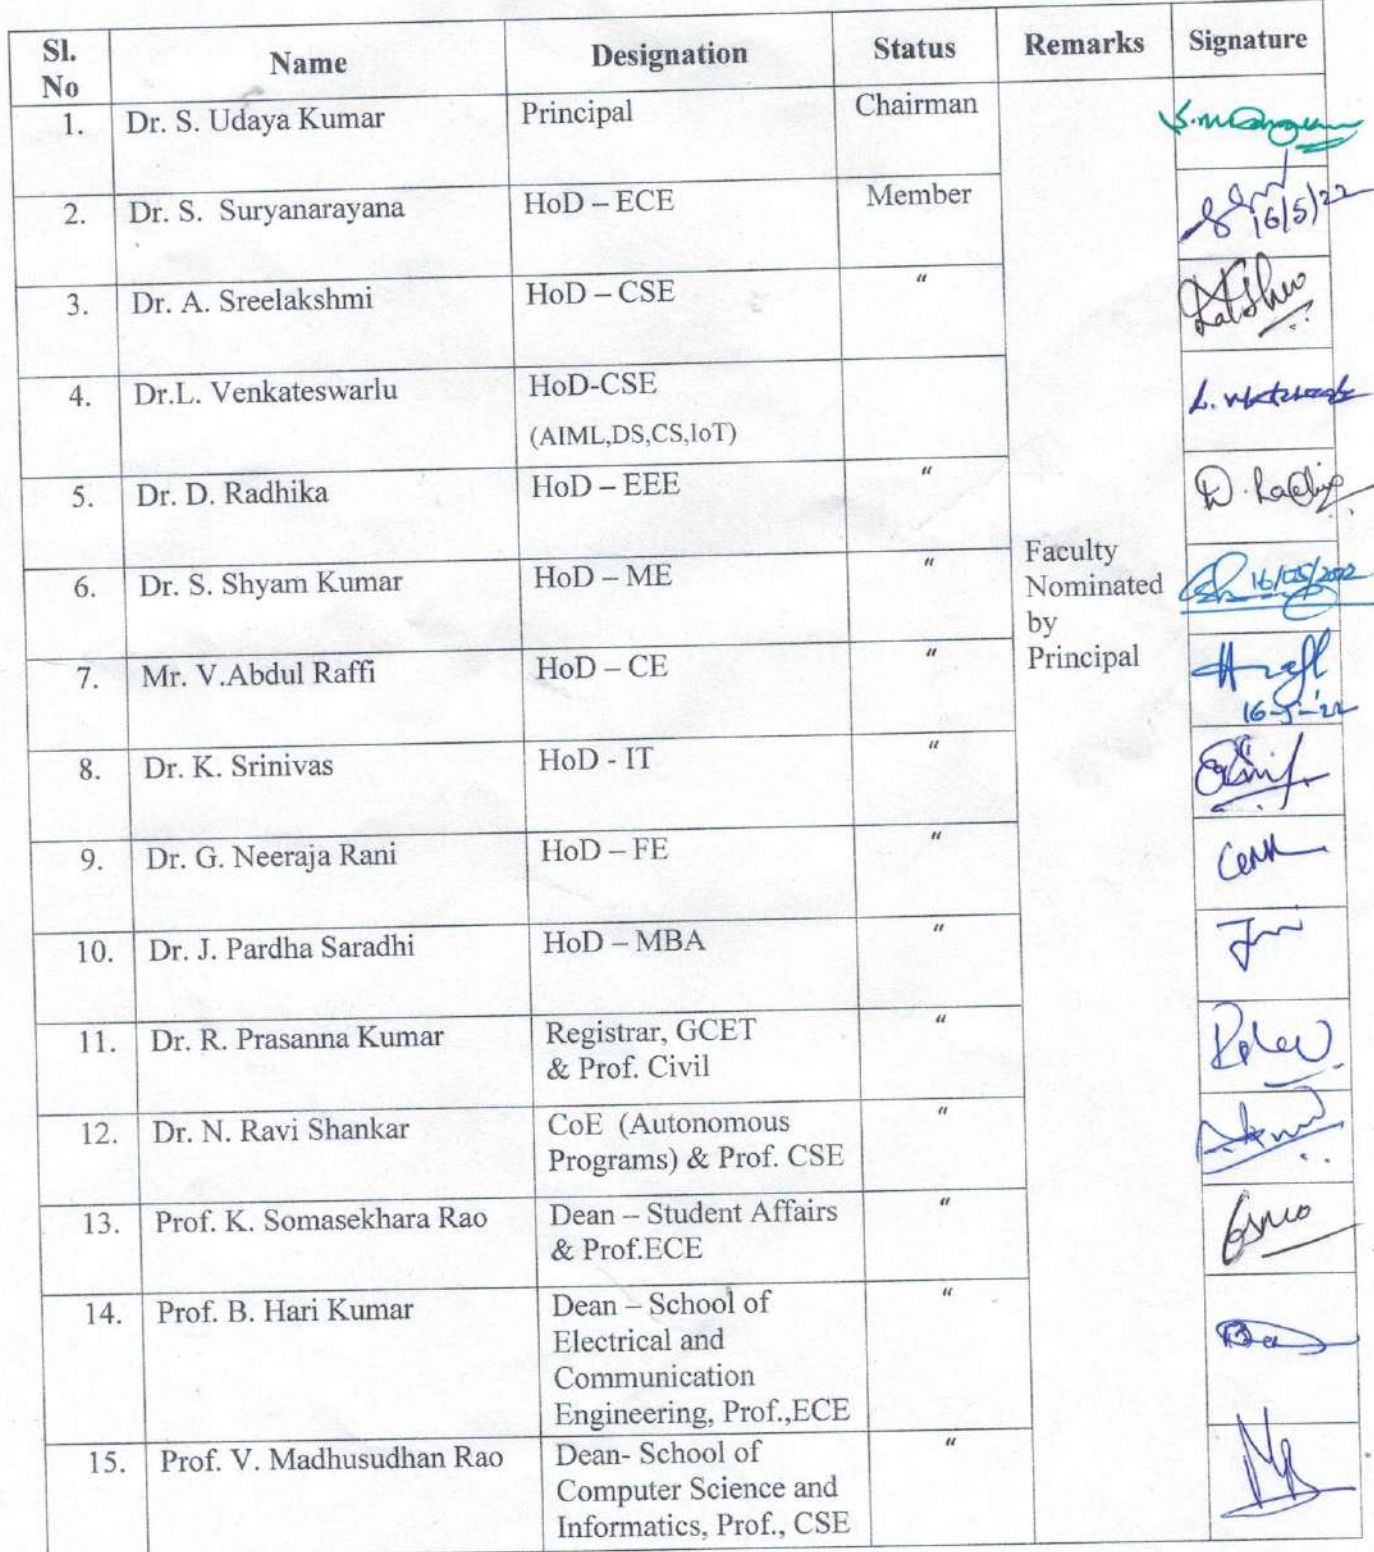 Sl. No Name Designation Status Remarks Signature
1. Dr. S. Udaya Kumar Principal Chairman
2. Dr. S. Suryanarayana HoD – ECE Member 16/5/22
3. Dr. A. Sreelakshmi HoD – CSE "
4. Dr.L. Venkateswarlu HoD-CSE
(AIML,DS,CS,IoT)
5. Dr. D. Radhika HoD – EEE " D. Radhip
Faculty
Nominated
by
Principal
6. Dr. S. Shyam Kumar HoD – ME " 16/05/2022
7. Mr. V.Abdul Raffi HoD – CE "
16-5-22
8. Dr. K. Srinivas HoD - IT "
9. Dr. G. Neeraja Rani HoD – FE "
10. Dr. J. Pardha Saradhi HoD – MBA "
11. Dr. R. Prasanna Kumar Registrar, GCET "
& Prof. Civil
12. Dr. N. Ravi Shankar CoE (Autonomous "
Programs) & Prof. CSE
13. Prof. K. Somasekhara Rao Dean – Student Affairs "
& Prof.ECE
14. Prof. B. Hari Kumar Dean – School of "
Electrical and
Communication
Engineering, Prof.,ECE
15. Prof. V. Madhusudhan Rao Dean- School of "
Computer Science and
Informatics, Prof., CSE